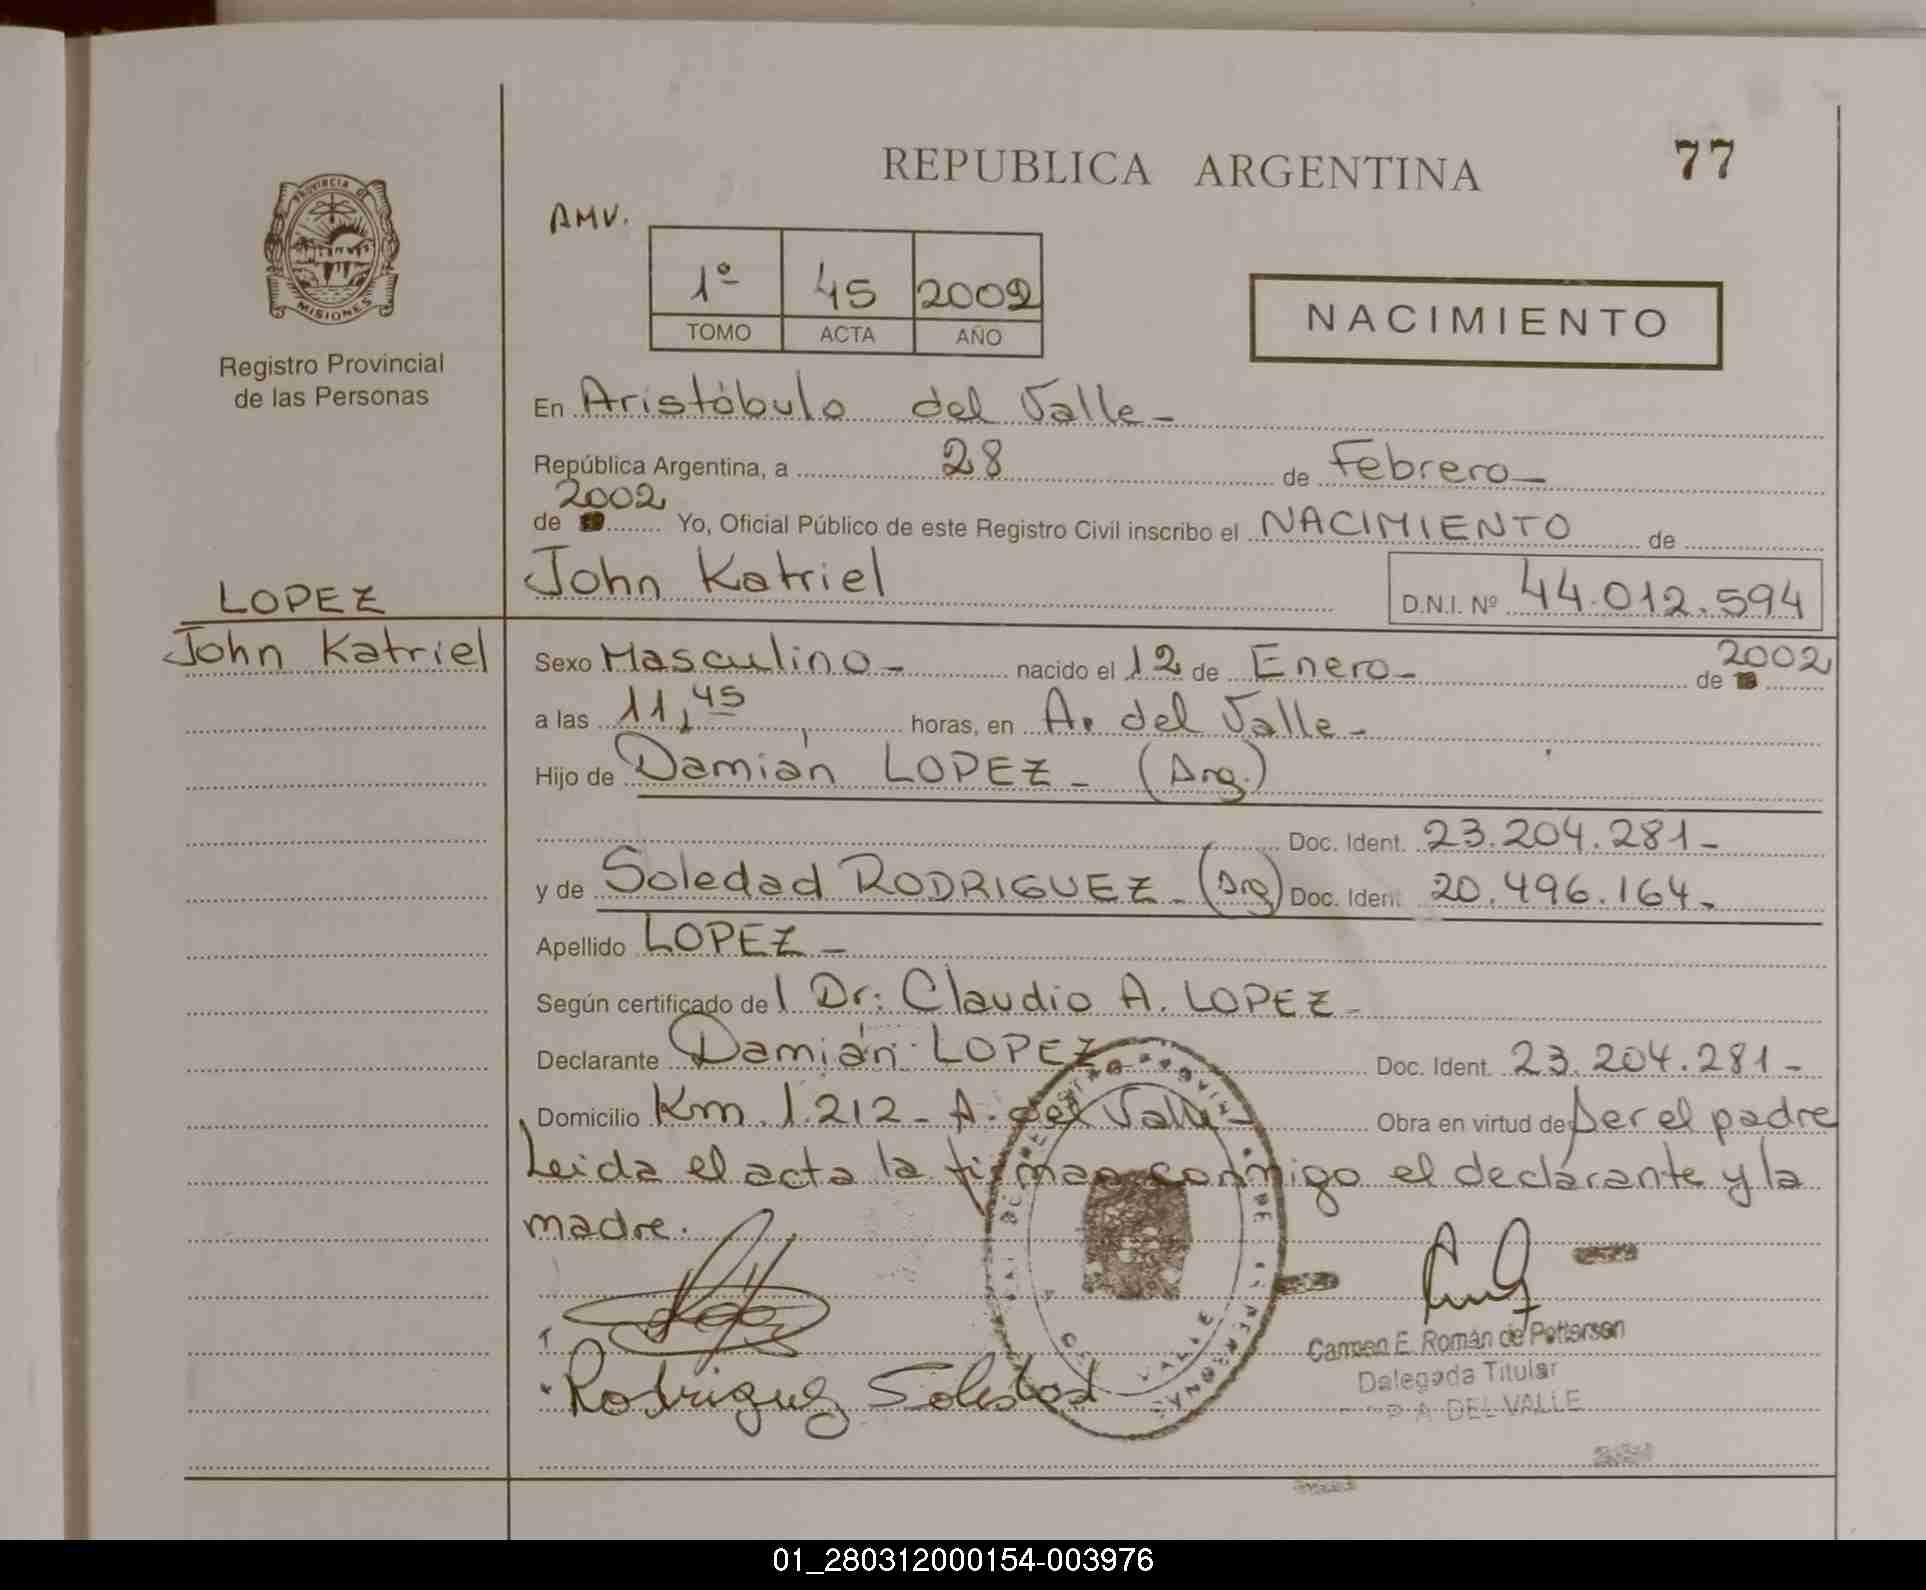 REPUBLICA ARGENTINA
77
PROVINCIA DE
MISIONES
Registro Provincial
de las Personas
AMV.
1º 45 2002
TOMO ACTA AÑO
NACIMIENTO
En Aristóbulo del Valle-
República Argentina, a 28 de Febrero-
2002
de Yo, Oficial Público de este Registro Civil inscribo el NACIMIENTO de
John Katriel D.N.I. Nº 44.012.594
LOPEZ
John Katriel
Sexo Masculino- nacido el 12 de Enero- de 2002
a las 11,45 horas, en A. del Valle-
Hijo de Damián LOPEZ- (Arg.)
Doc. Ident. 23.204.281-
y de Soledad RODRIGUEZ- (Arg) Doc. Ident. 20.496.164-
Apellido LOPEZ-
Según certificado del Dr: Claudio A. LOPEZ-
Declarante Damián LOPEZ Doc. Ident. 23.204.281-
Domicilio Km. 1.212- A. del Valle- Obra en virtud de Ser el padre
Leida el acta la firman conmigo el declarante y la
madre.
Rodriguez Soledad
Carmen E. Román de Petterson
Delegada Titular
A. DEL VALLE
01_280312000154-003976